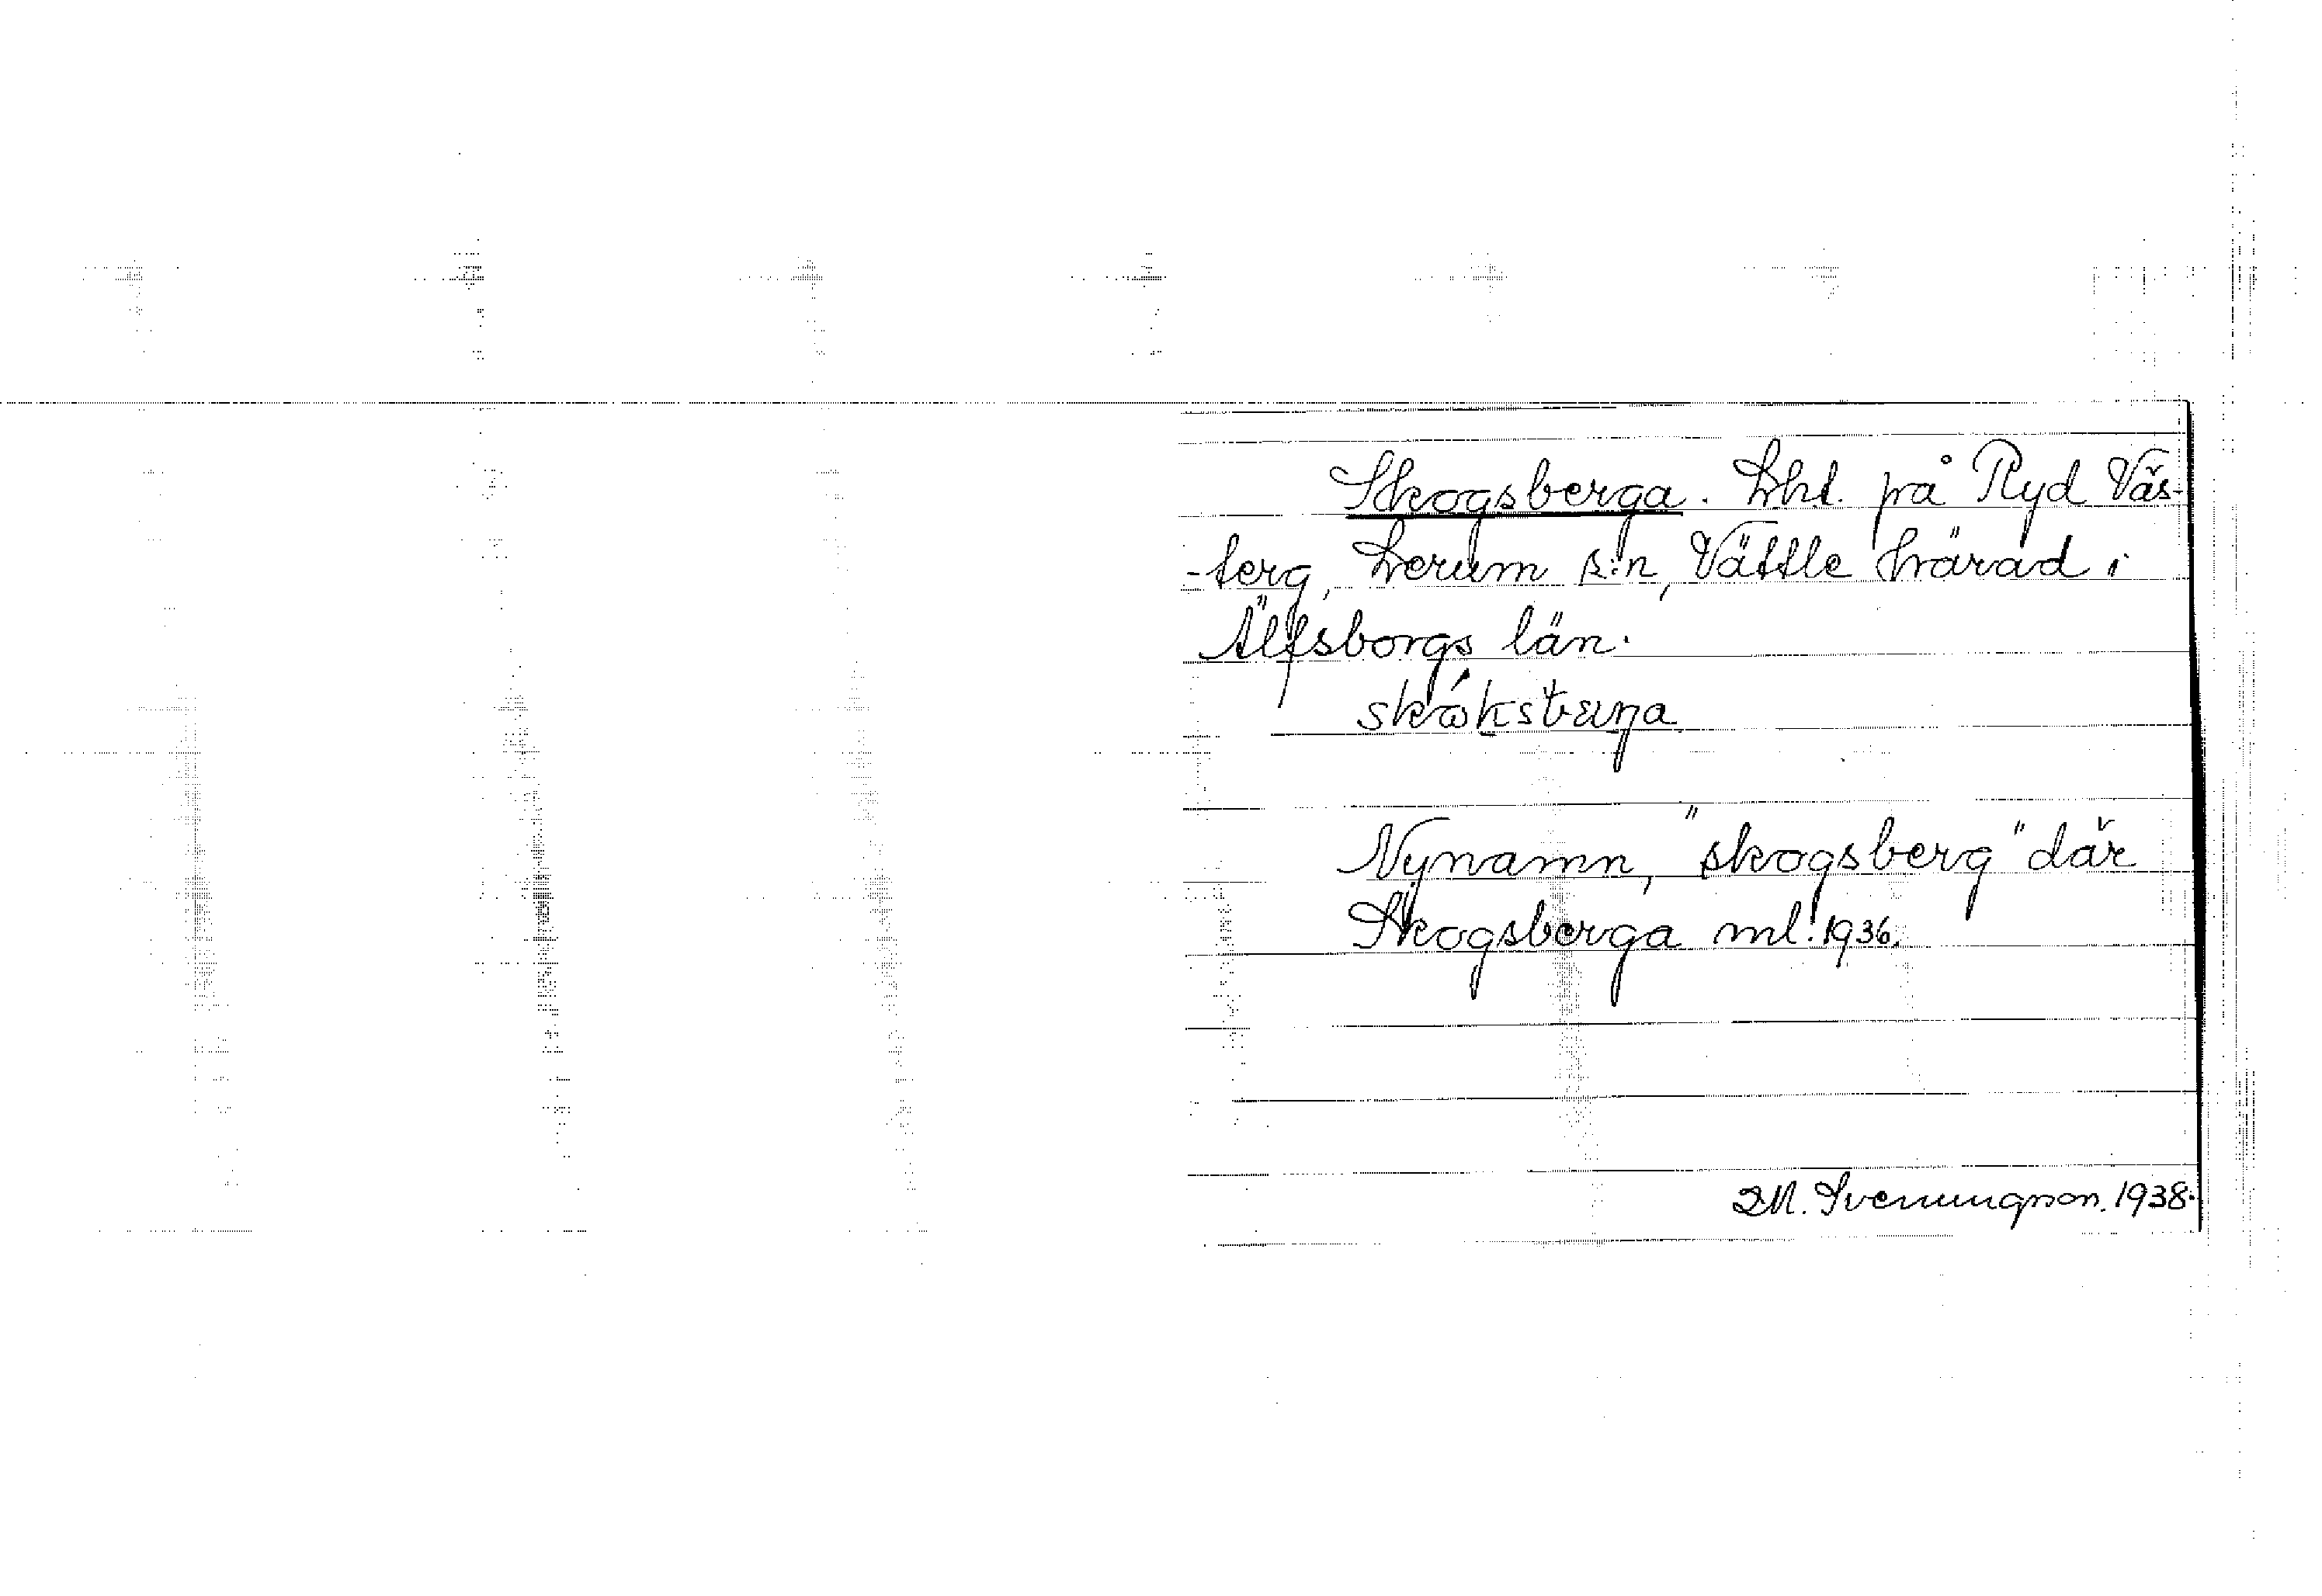 Skogsberga. Lht. på Ryd Väs-
-terg, Lerum s:n, Vättle härad i
Älfsborgs län.
Nynamn, "skogsberg" där
Skogsberga ml. 1936.
M. Svenungson. 1938.